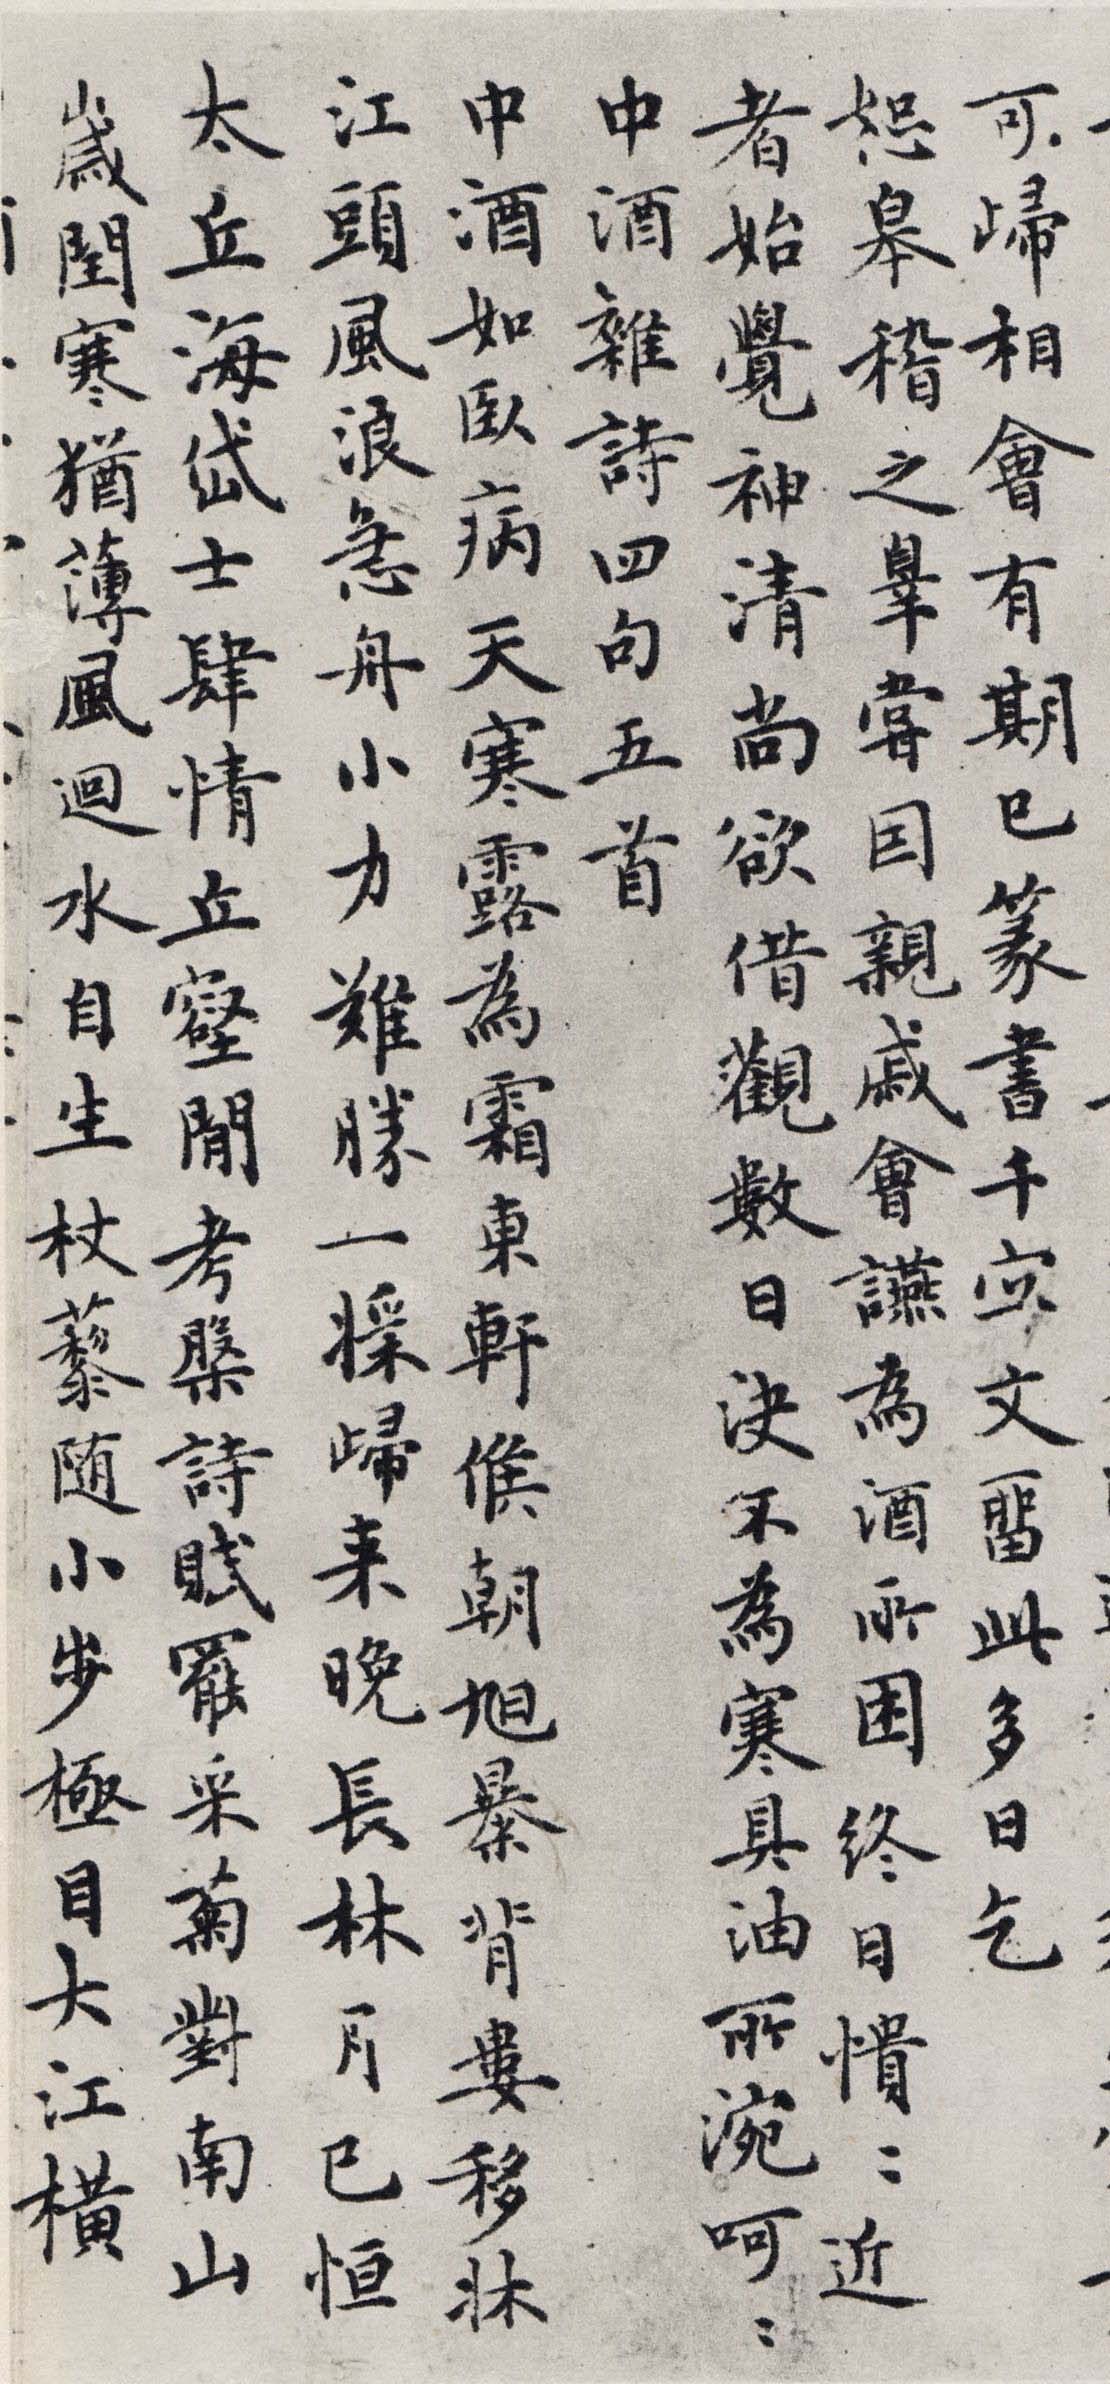 可歸相會有期已篆書千字文留此多日乞
恕皋稽之辠嘗因親戚會讌為酒所困終日憒〻近
者始覺神清尚欲借觀數日決不為寒具油所涴呵〻
中酒雜詩四句五首
中酒如臥病天寒露為霜東軒候朝旭暴背婁移牀
江頭風浪急舟小力難勝一採歸来晚長林月已恒
太丘海岱士肆情丘壑閒考槃詩賦罷采菊對南山
歲閏寒猶薄風迴水自生杖藜随小步極目大江橫